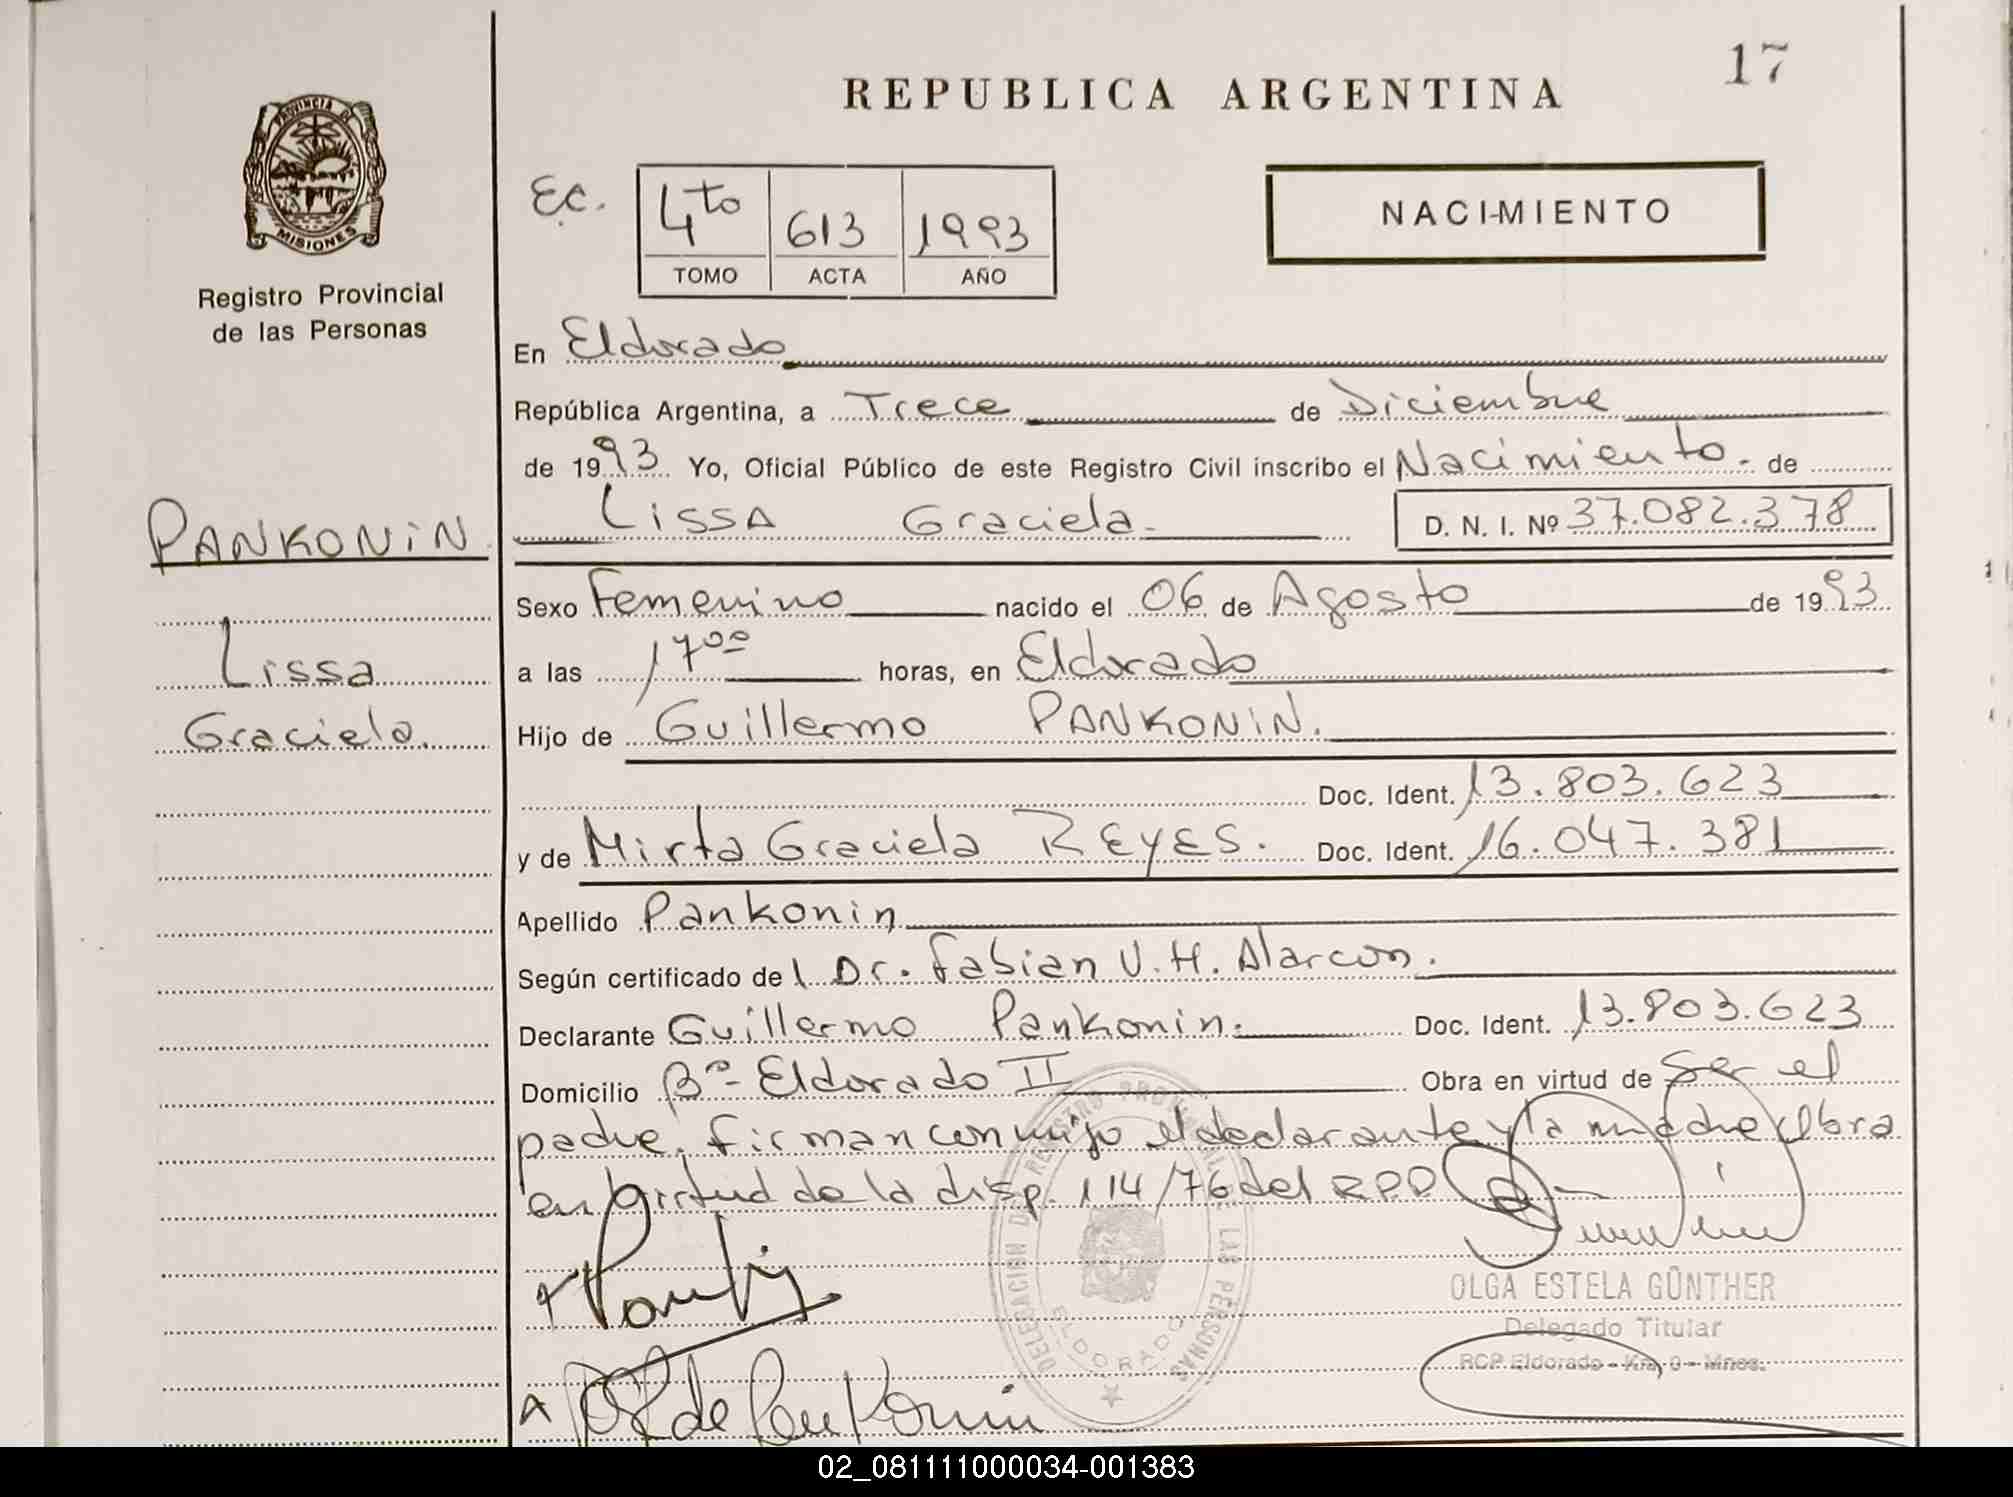 17
REPUBLICA ARGENTINA
PROVINCIA DE
MISIONES
Registro Provincial
de las Personas
Ec.
4to 613 1993
TOMO ACTA AÑO
NACIMIENTO
En Eldorado
República Argentina, a Trece de Diciembre
de 1993 Yo, Oficial Público de este Registro Civil inscribo el Nacimiento. de
Lissa Graciela D. N. I. Nº 37.082.378
PANKONIN
Lissa
Graciela.
Sexo Femenino nacido el 06 de Agosto de 1993
a las 17⁰⁰ horas, en Eldorado
Hijo de Guillermo PANKONIN.
Doc. Ident. 13.803.623
y de Mirta Graciela REYES. Doc. Ident. 16.047.381
Apellido Pankonin
Según certificado de l Dr. Fabian V. H. Alarcon.
Declarante Guillermo Pankonin. Doc. Ident. 13.803.623
Domicilio Bº- Eldorado II Obra en virtud de Ser el
padre. firman conmigo el declarante y la madre Obra
en virtud de la disp. 114/76 del RPP
DELEGACION DEL REGISTRO PROVINCIAL DE LAS PERSONAS
ELDORADO
OLGA ESTELA GÜNTHER
Delegado Titular
RCP Eldorado - Km. 9 - Mnes.
de Pankonin
02_081111000034-001383